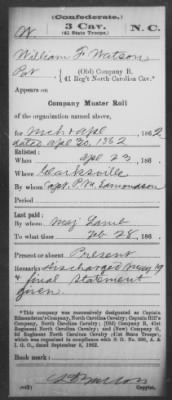 (Confederate.)
W 3 Cav. N. C.
(41 State Troops.)
William F Watson
Pvt, (Old) Company B,
41 Reg't North Carolina Cav.*
Appears on
Company Muster Roll
of the organization named above,
for Mch & Apl, 1862
dated Apl 30, 1862
Enlisted:
When Apl 23, 186 .
Where Clarksville
By whom Capt. P. M. Edmondson
Period
Last paid:
By whom Maj Lamb
To what time Feb 28, 186 .
Present or absent Present
Remarks: Discharged May 19
& final statement
given.
*This company was successively designated as Captain
Edmondston's Company, North Carolina Cavalry; Captain Hill's
Company, North Carolina Cavalry; (Old) Company B, 41st
Regiment North Carolina Cavalry; and (New) Company
3d Regiment North Carolina Cavalry (41st State Troops),
which was organized in compliance with S. O. No. 206, A. &
I. G. O., dated September 3, 1862.
Book mark:
(642) Copyist.